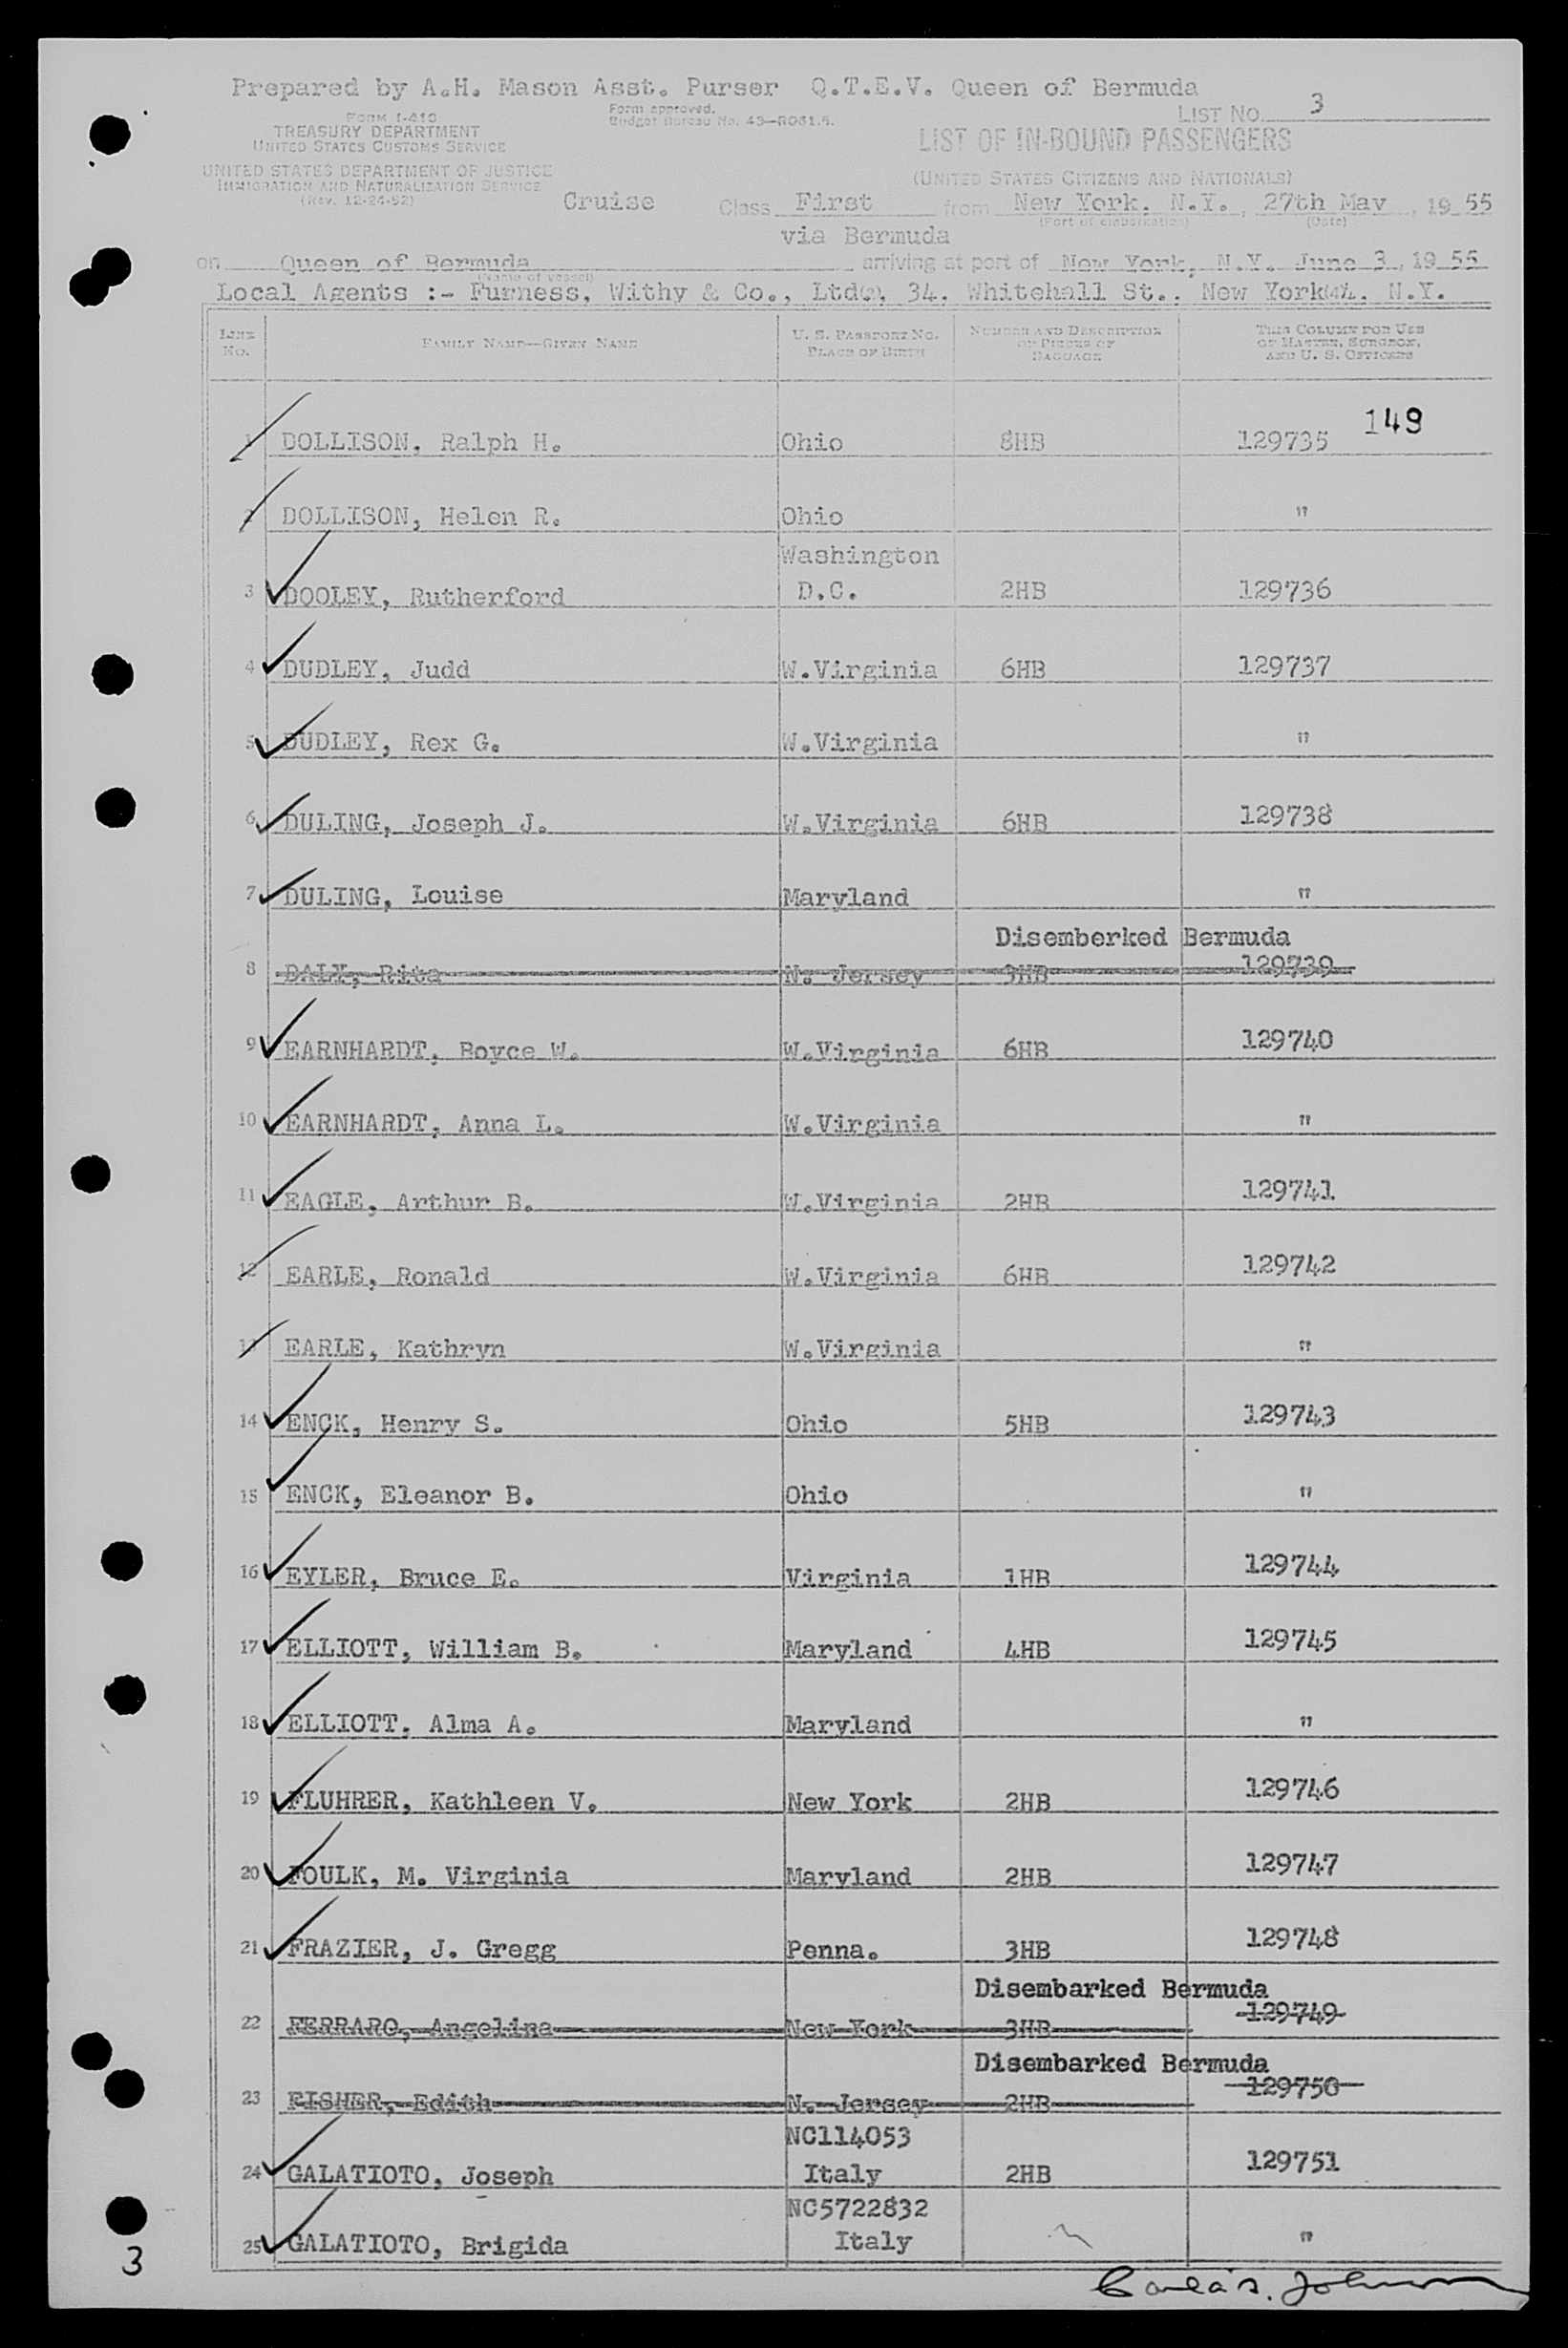 Prepared by A.H. Mason Asst. Purser Q.T.E.V. Queen of Bermuda
Form approved.
Budget Bureau No. 43—R061.5.
LIST No. 3
FORM I-418
TREASURY DEPARTMENT
UNITED STATES CUSTOMS SERVICE
LIST OF IN-BOUND PASSENGERS
UNITED STATES DEPARTMENT OF JUSTICE
IMMIGRATION AND NATURALIZATION SERVICE
(Rev. 12-24-52)
(UNITED STATES CITIZENS AND NATIONALS)
Cruise Class First from New York, N.Y., 27th May, 1955
(Port of embarkation) (Date)
via Bermuda
on Queen of Bermuda arriving at port of New York, N.Y. June 3, 1955
(Name of vessel)
Local Agents :- Furness, Withy & Co., Ltd., 34, Whitehall St., New York 4. N.Y.
LINE No. FAMILY NAME—GIVEN NAME U. S. PASSPORT NO. PLACE OF BIRTH NUMBER AND DESCRIPTION OF PIECES OF BAGGAGE THIS COLUMN FOR USE OF MASTER, SURGEON, AND U. S. OFFICERS
149
1 DOLLISON, Ralph H. Ohio 8HB 129735
2 DOLLISON, Helen R. Ohio "
Washington
3 DOOLEY, Rutherford D.C. 2HB 129736
4 DUDLEY, Judd W.Virginia 6HB 129737
5 DUDLEY, Rex G. W.Virginia "
6 DULING, Joseph J. W.Virginia 6HB 129738
7 DULING, Louise Maryland "
Disemberked Bermuda
8 DALY, Rita N. Jersey 3HB 129739
9 EARNHARDT, Boyce W. W.Virginia 6HB 129740
10 EARNHARDT, Anna L. W.Virginia "
11 EAGLE, Arthur B. W.Virginia 2HB 129741
12 EARLE, Ronald W.Virginia 6HB 129742
13 EARLE, Kathryn W.Virginia "
14 ENCK, Henry S. Ohio 5HB 129743
15 ENCK, Eleanor B. Ohio "
16 EYLER, Bruce E. Virginia 1HB 129744
17 ELLIOTT, William B. Maryland 4HB 129745
18 ELLIOTT, Alma A. Maryland "
19 FLUHRER, Kathleen V. New York 2HB 129746
20 FOULK, M. Virginia Maryland 2HB 129747
21 FRAZIER, J. Gregg Penna. 3HB 129748
Disembarked Bermuda
22 FERRARO, Angelina New York 3HB 129749
Disembarked Bermuda
23 FISHER, Edith N. Jersey 2HB 129750
NC114053
24 GALATIOTO, Joseph Italy 2HB 129751
NC5722832
25 GALATIOTO, Brigida Italy "
3
Johnson